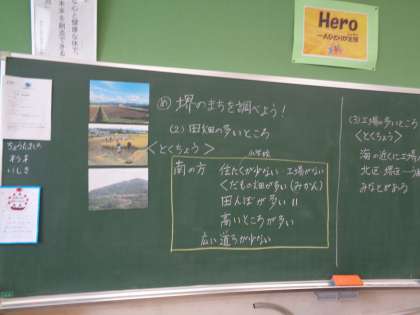 心と健康な体で、
未来を創造できる
Hero
一人ひとりが主役
ちょうたんの
いしき
め 堺のまちを調べよう!
(2) 田畑の多いところ
<とくちょう>
小学校
南の方 住たくが少ない 工場がない
くだもの畑が多い(みかん)
田んぼが多い 〃
高いところが多い
広い道ろが少ない
(3) 工場の多いところ
<とくちょう>
海の近くに工場
北区 堺区
みなとがある